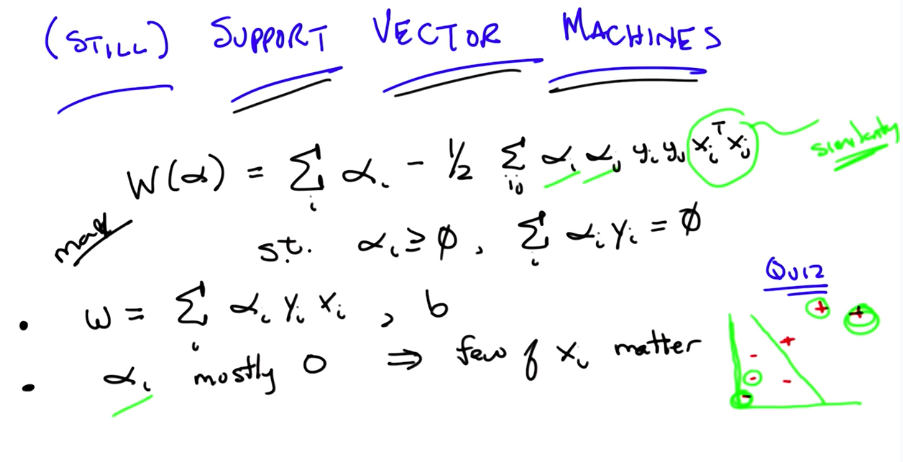 (STILL) SUPPORT VECTOR MACHINES
max W(α) = Σ_i α_i - 1/2 Σ_ij α_i α_j y_i y_j x_i^T x_j similarity
s.t. α_i ≥ ∅, Σ_i α_i y_i = ∅
• w = Σ_i α_i y_i x_i, b
• α_i mostly 0 ⇒ few of x_i matter
QUIZ
+ +
- +
- -
-